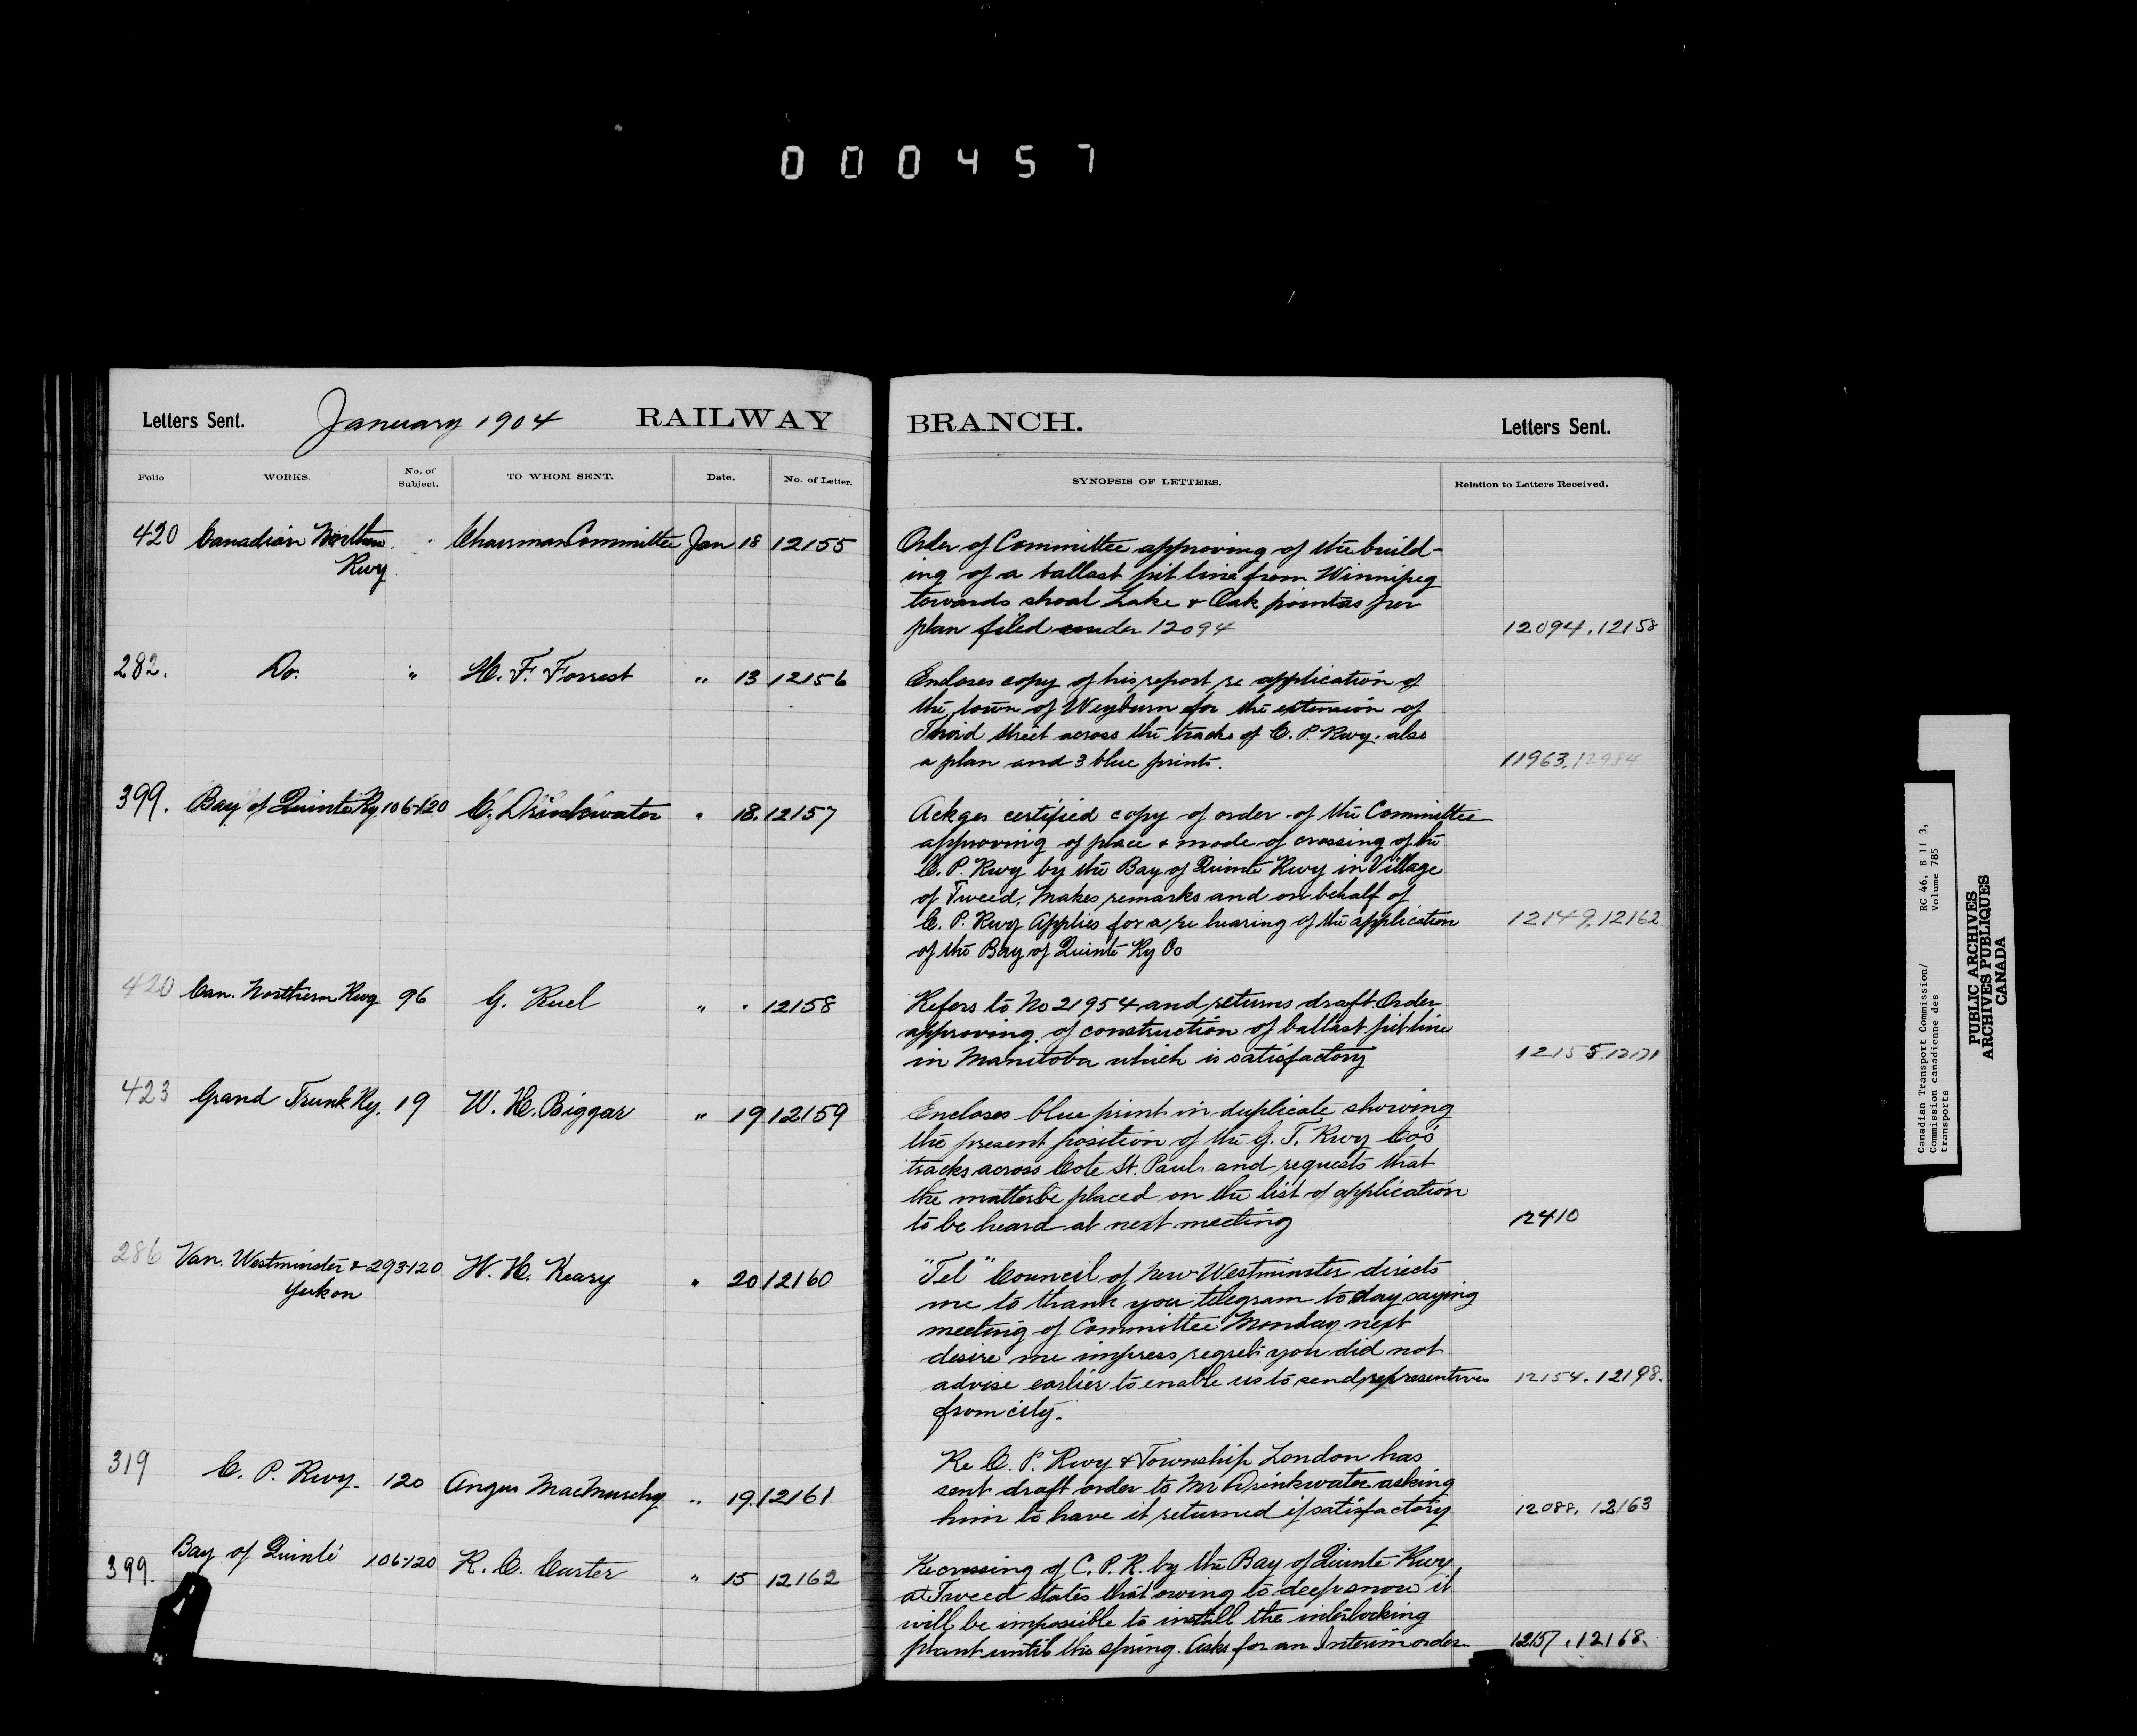 0 0 0 4 5 7
Letters Sent. January 1904 RAILWAY BRANCH. Letters Sent.
Folio WORKS. No. of Subject. TO WHOM SENT. Date. No. of Letter. SYNOPSIS OF LETTERS. Relation to Letters Received.
420 Canadian Northern Chairman Committee Jan 18 12155 Order of Committee approving of the build-
Rwy ing of a ballast pit line from Winnipeg
towards shoal Lake & Oak point as per
plan filed under 12094 12094. 12158
282. Do. " H. F. Forrest " 13 12156 Encloses copy of his report re application of
the town of Weyburn for the extension of
Third street across the tracks of C. P. Rwy. also
a plan and 3 blue prints. 11963. 12984
399. Bay of Quinte Ry 106-120 C. Drinkwater " 18. 12157 Ackges certified copy of order of the Committee
approving of place & mode of crossing of the
C. P. Rwy by the Bay of Quinte Rwy in Village
of Tweed, makes remarks and on behalf of
C. P. Rwy Applies for a re hearing of the application 12149. 12162
of the Bay of Quinte Ry Co
420 Can. Northern Rwy 96 G. Ruel " " 12158 Refers to No 21954 and returns draft Order
approving of construction of ballast pit line
in Manitoba which is satisfactory 12155. 12171
423 Grand Trunk Ry. 19 W. H. Biggar " 19 12159 Encloses blue print in duplicate showing
the present position of the G. T. Rwy Co's
tracks across Cote St. Paul. and requests that
the matter be placed on the list of application
to be heard at next meeting 12410
286 Van. Westminster & 293-120 W. H. Keary " 20 12160 "Tel" Council of New Westminster directs
Yukon me to thank you telegram to day saying
meeting of Committee Monday next
desire me impress regret you did not
advise earlier to enable us to send representives 12154. 12198.
from city.
319 C. P. Rwy. 120 Angus MacMurchy " 19. 12161 Re C. P. Rwy & Township London has
sent draft order to Mr Drinkwater asking
him to have it returned if satisfactory 12088. 12163
399. Bay of Quinte 106-120 R. C. Carter " 15 12162 Re crossing of C. P. R. by the Bay of Quinte Rwy
at Tweed states that owing to deep snow it
will be impossible to install the interlocking
plant until the spring. Asks for an Interim order 12157. 12168.
Canadian Transport Commission/ RG 46, B II 3,
Commission canadienne des Volume 785
transports
PUBLIC ARCHIVES
ARCHIVES PUBLIQUES
CANADA